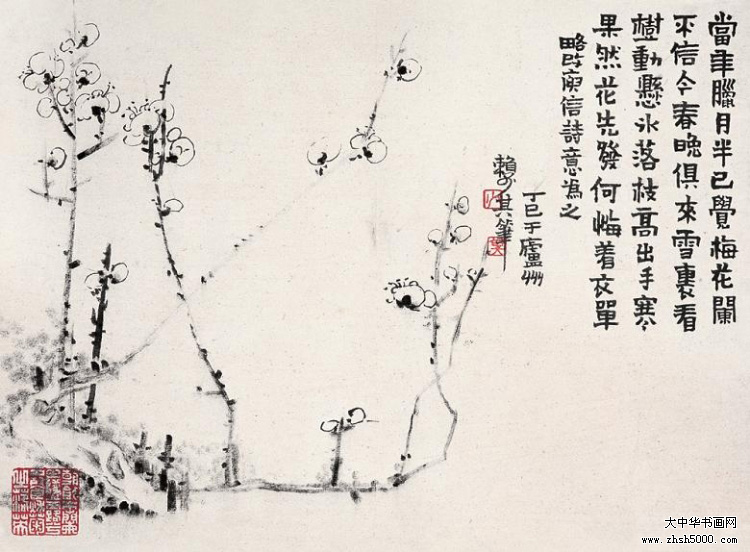 當年臘月半已覺梅花闌
不信今春晚俱來雪裏看
樹動懸氷落枝高出手寒
果然花先發何悔着衣單
略改庾信詩意為之
丁巳于廬州
賴少其筆
大中华书画网
www.zhsh5000.com